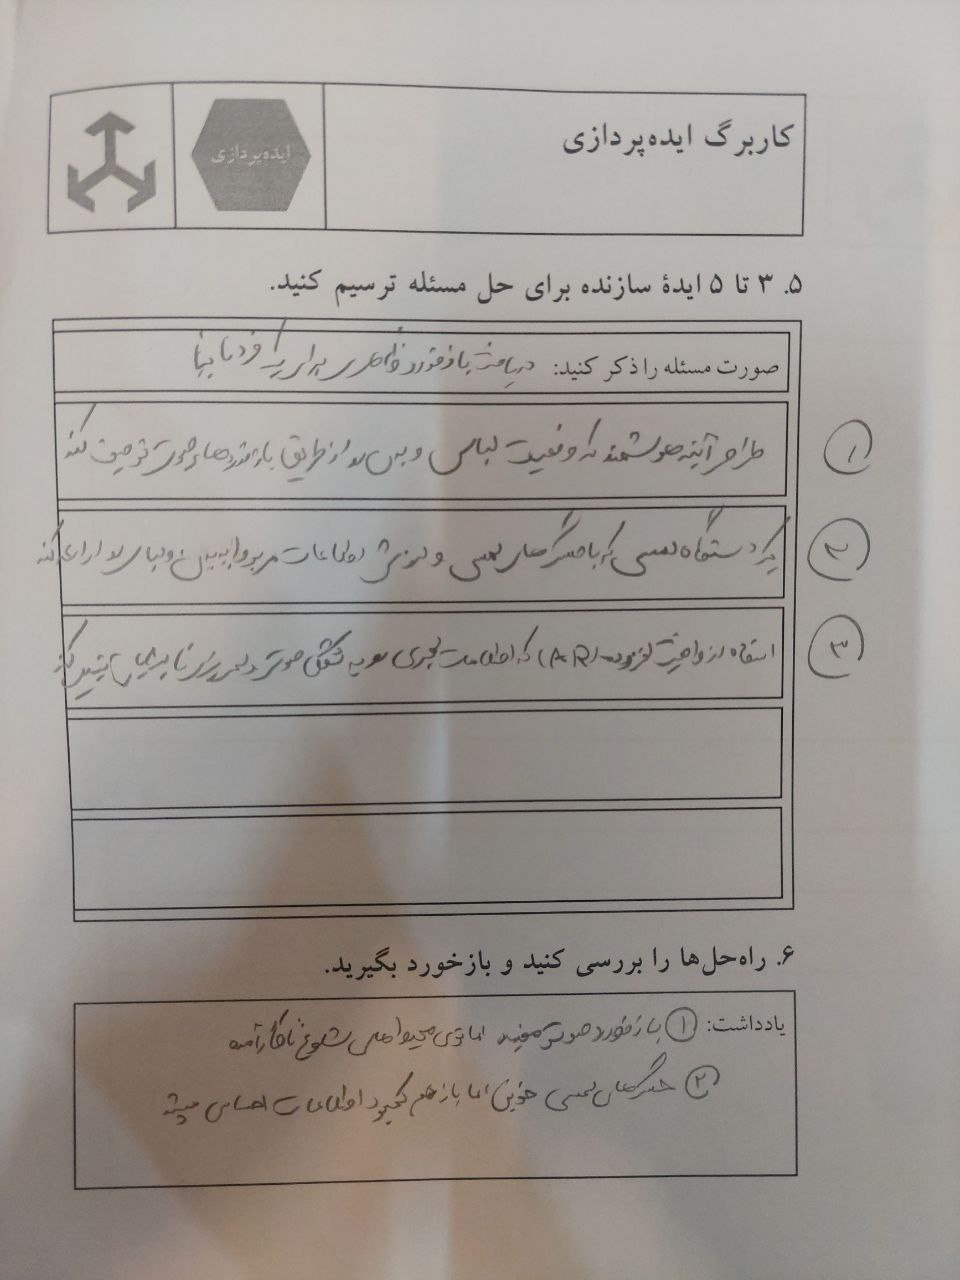 کاربرگ ایده‌پردازی
ایده‌پردازی
۵. ۳ تا ۵ ایدهٔ سازنده برای حل مسئله ترسیم کنید.
صورت مسئله را ذکر کنید: دریافت بازخورد ظاهری برای یک فرد نابینا
۱ طراحی آینه هوشمند که وضعیت لباس و بدن رو از طریق بازخوردهای صوتی توصیف کنه
۲ یک دستگاه لمسی که با حسگرهای لمسی و لرزش اطلاعات مربوط به بدن و لباس رو ارائه کنه
۳ استفاده از واقعیت افزوده (AR) که اطلاعات بصری رو به شکل صوتی و لمسی برای نابینایان تبدیل کنه
۶. راه‌حل‌ها را بررسی کنید و بازخورد بگیرید.
یادداشت: ۱ بازخورد صوتی مفیده اما توی محیط‌های شلوغ ناکارآمده
۲ حسگرهای لمسی خوبن اما باز هم کمبود اطلاعات احساس میشه